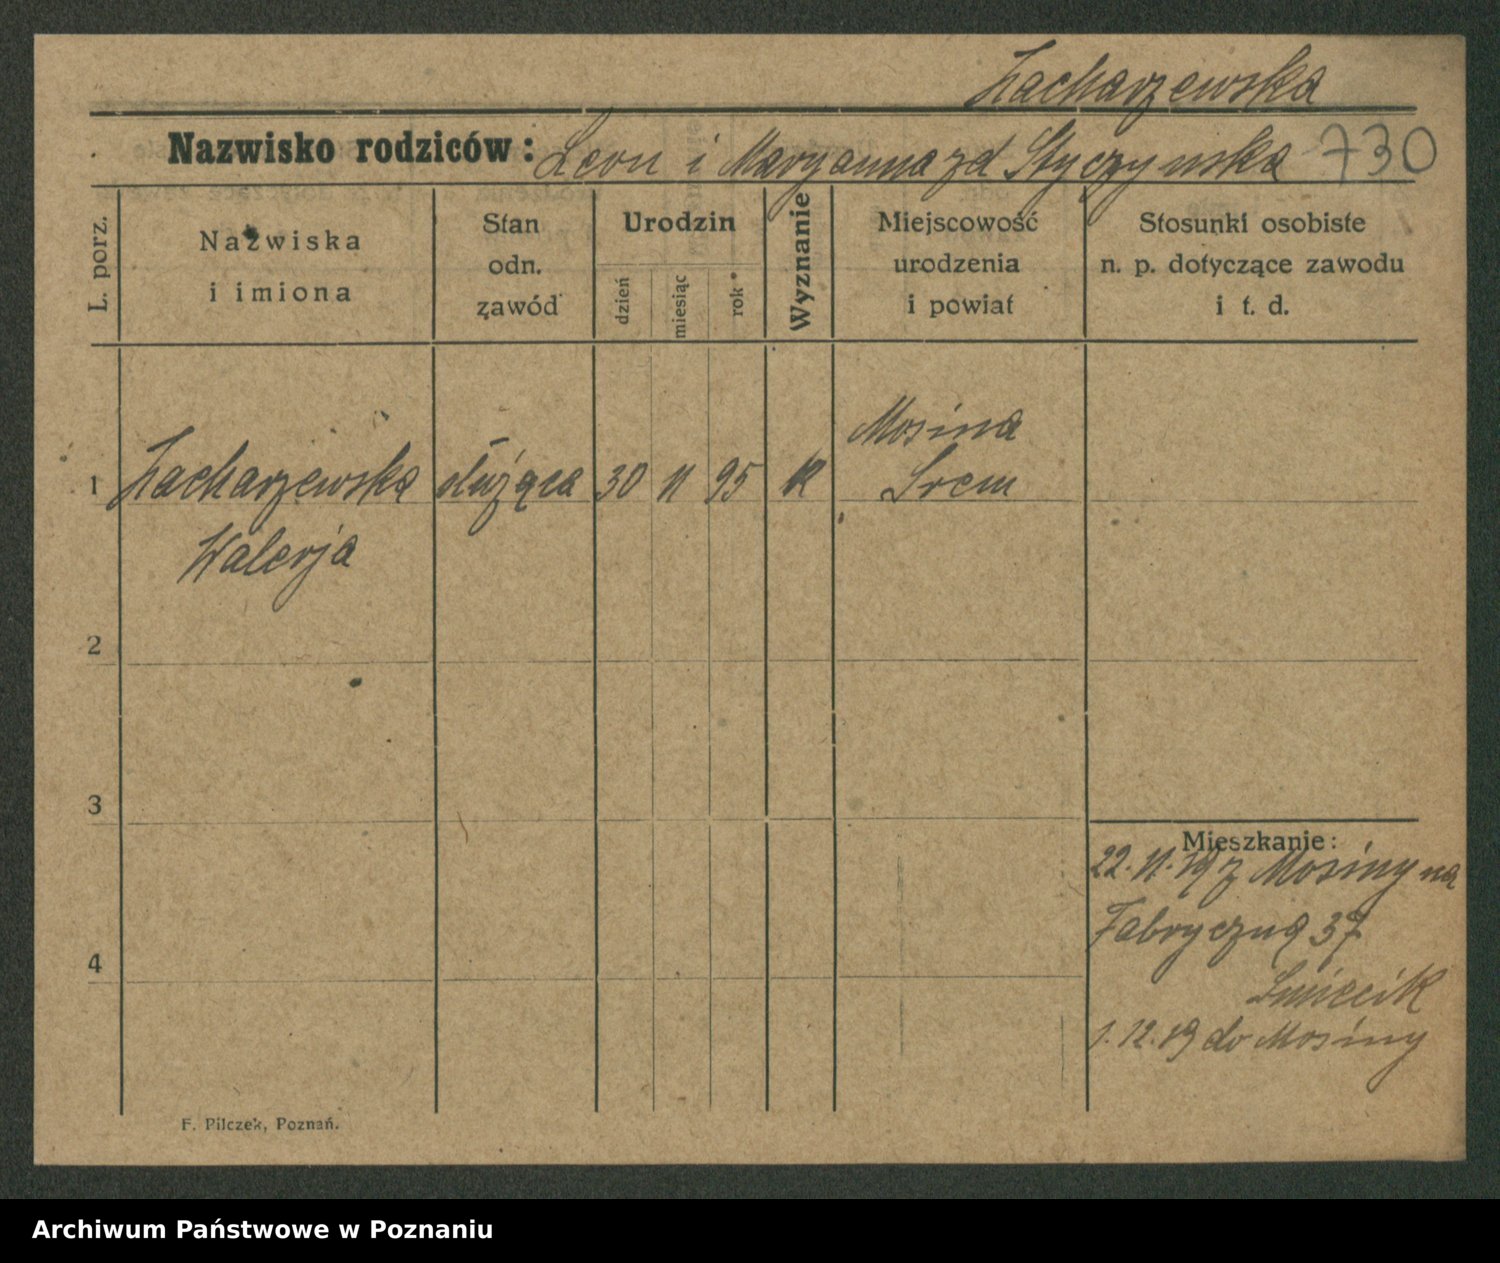 Zacharzewska
Nazwisko rodziców: Leon i Maryanna zd Styczynska 730
L. porz.
Nazwiska
i imiona
Stan
odn.
zawód
Urodzin
dzień
miesiąc
rok
Wyznanie
Miejscowość
urodzenia
i powiat
Stosunki osobiste
n. p. dotyczące zawodu
i t. d.
Mosina
1 Zacharzewska służąca 30 11 95 k Srem
Walerja
2
3
Mieszkanie:
22.11.19 z Mosiny na
Fabryczną 37
4
1.12.19 do Mosiny
F. Pilczek, Poznań.
Archiwum Państwowe w Poznaniu